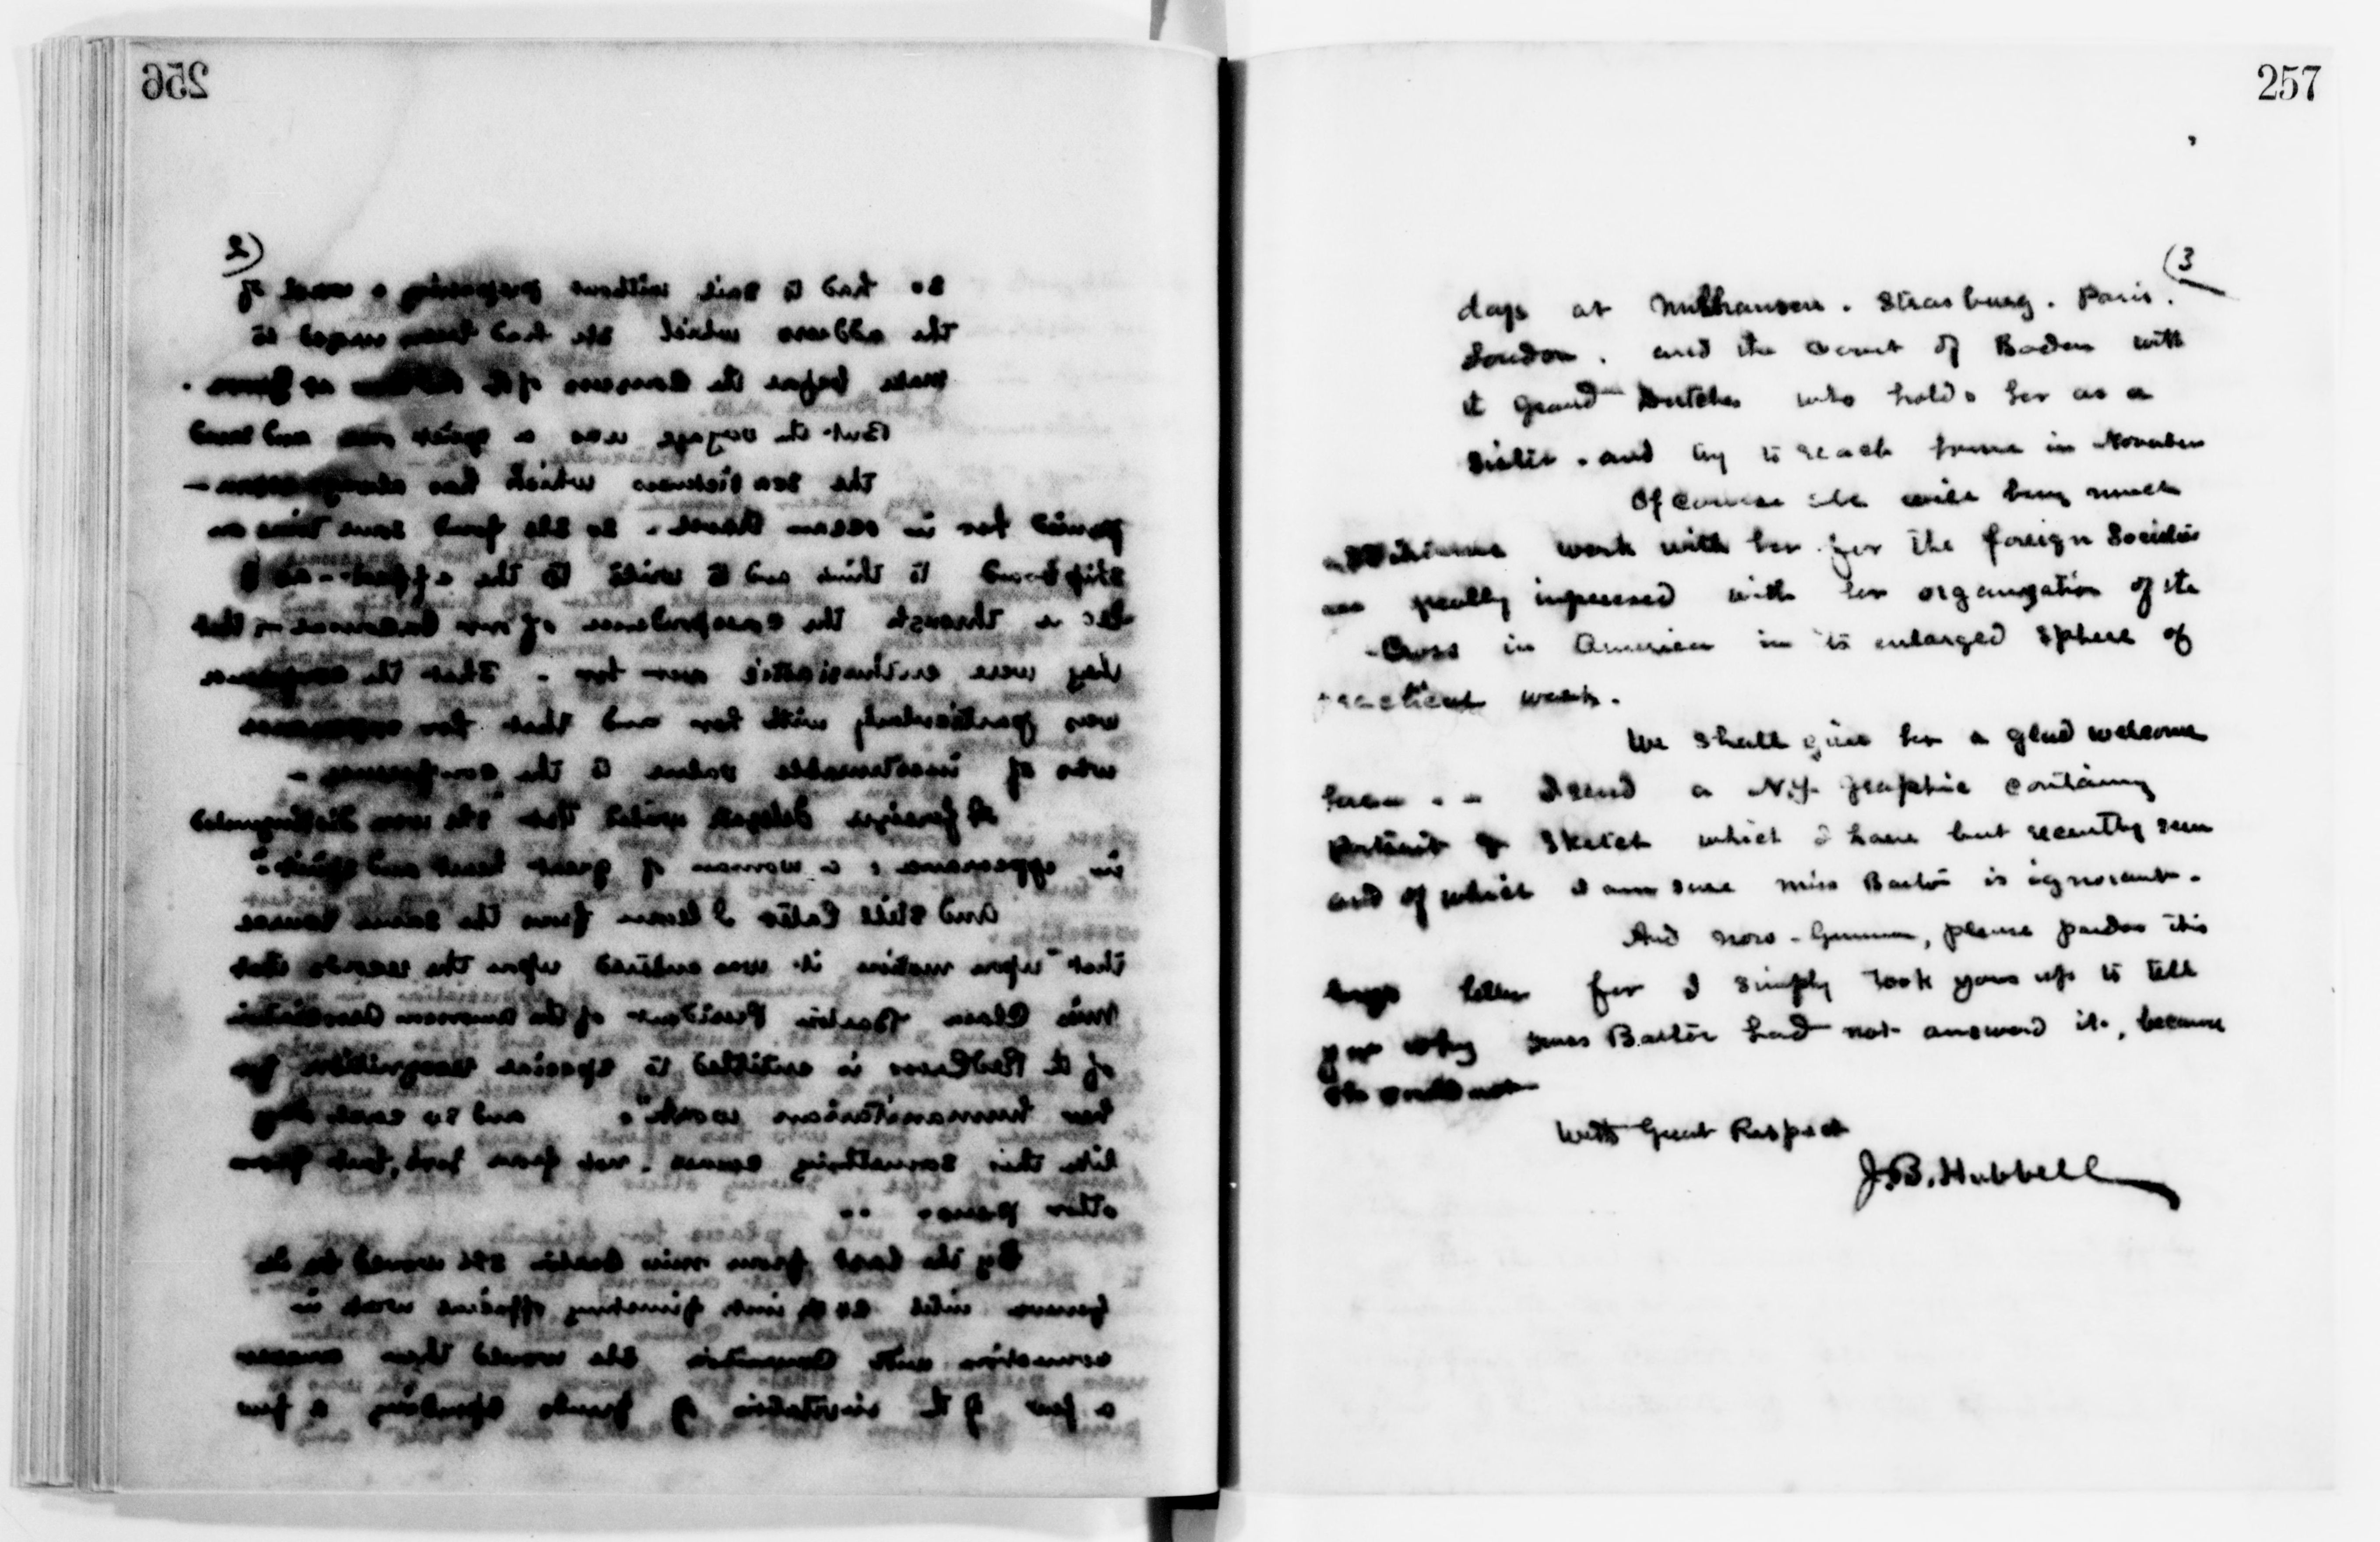 256
2)
so had to sail without preparing a word of
the address which she had been urged to
make before the Congress of the at Geneva.
But the voyage was a quiet one and
the sea sickness which has always
pained her in ocean travel. so she found some time on
shipboard to think and to write to the effect
is through the correspondence of our that
they were enthusiastic over her. That the
was particularly with her and that her
was of inestimable value to the conference -
A foreign delegate writes that she was distinguished
in appearance: a woman of great heart and spirit".
And still later I learn from the same source
that "upon motion it was entered upon the records that
Miss Clara Barton President of the American Association
of the Red Cross is entitled to special recognition for
her humanitarian work". and so each day
like this something comes. not from her, but from
other
By the last from Miss Barton she would be in
Geneva until 20th inst finishing official work in
connection with Committee she would then answer
a few of the invitations of friends spending a few
257
(3
days at Mulhausen. Strasburg. Paris.
London. and the Court of Baden with
it Grand Dutches who holds her as a
sister. and try to reach home in November
Of course she will bring much
work with her for the foreign Societies
are greatly impressed with her organization of the
Cross in America in its enlarged sphere of
practical work.
We shall give her a glad welcome
home. - I send a N.Y. Graphic containing
portrait & sketch which I have but recently seen
and of which I am sure Miss Barton is ignorant.
And now - , please pardon this
long letter for I simply took yours up to tell
you why Miss Barton had not answerd it, because
she could not
With Great Respect
J.B. Hubbell